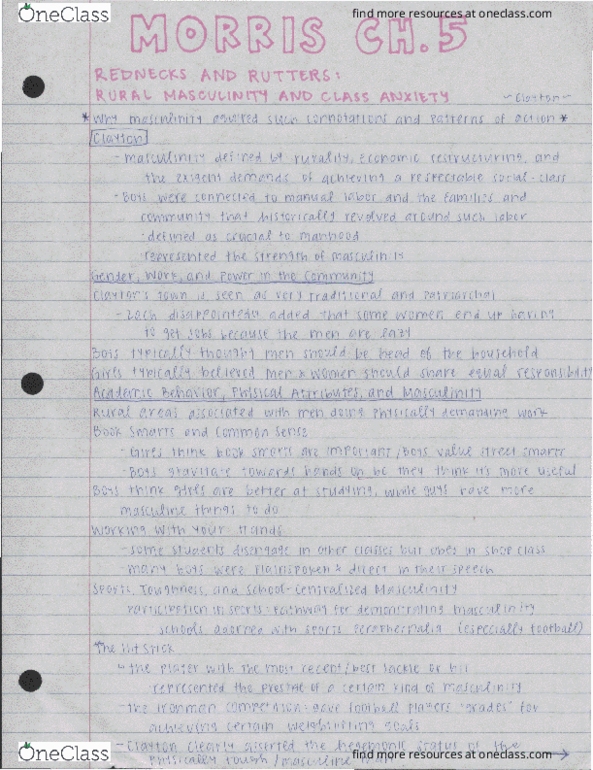 OneClass
find more resources at oneclass.com
MORRIS CH.5
REDNECKS AND RUTTERS:
RURAL MASCULINITY AND CLASS ANXIETY
~Clayton~
*Why masculinity acquired such connotations and patterns of action*
Clayton
- masculinity defined by rurality, economic restructuring, and
the exigent demands of achieving a respectable social-class
- Boys were connected to manual labor and the families and
community that historically revolved around such labor
- defined as crucial to manhood
represented the strength of masculinity
Gender, Work, and Power in the Community
Clayton's town is seen as very traditional and patriarchal
- Zach disappointedly added that some women end up having
to get jobs because the men are lazy
Boys typically thought men should be head of the household
Girls typically believed men & women should share equal responsibility
Academic Behavior, Physical Attributes, and Masculinity
Rural areas associated with men doing physically demanding work
Book Smarts and Common Sense
- Girls think book smarts are important/boys value street smarts
- Boys gravitate towards hands on bc they think it's more useful
Boys think girls are better at studying, while guys have more
masculine things to do
Working with Your Hands
- some students disengage in other classes but does in shop class
- many boys were plainspoken & direct in their speech
Sports, Toughness, and School-Centralized Masculinity
Participation in sports = pathway for demonstrating masculinity
schools adorned with sports (especially football)
The Hit Stick
the player with the most recent/best tackle or hit
represented the prestige of a certain kind of masculinity
- the ironman competition: gave football players "grades" for
achieving certain weightlifting goals
- Clayton clearly asserted the hegemonic status of the
physically tough/masculine
OneClass
find more resources at oneclass.com